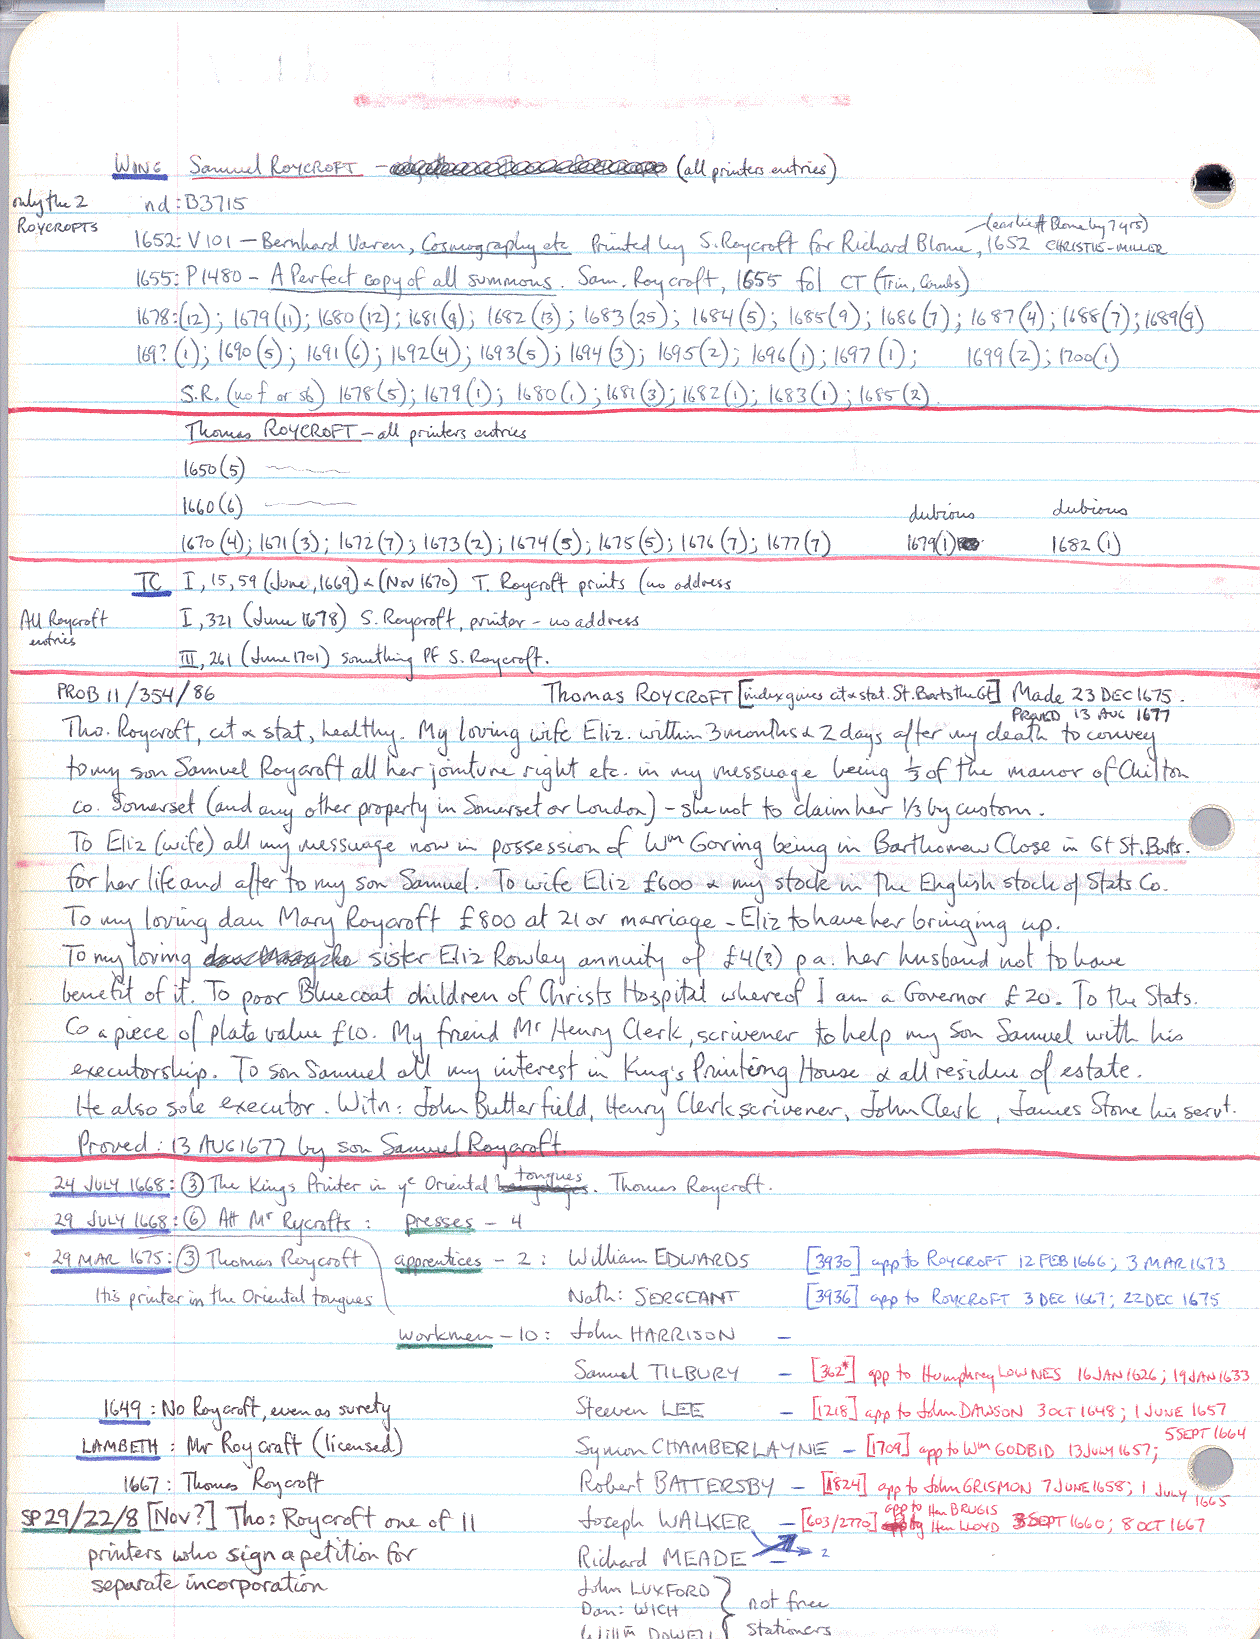 WING Samuel ROYCROFT - (all printers entries)
only the 2 ROYCROFTS
nd: B3715
(earliest Blome by 7 yrs)
1652: V101 - Bernhard Varen, Cosmography etc Printed by S. Roycroft for Richard Blome, 1652 CHRISTIE-MILLER
1655: P1480 - A Perfect copy of all summons. Sam. Roycroft, 1655 fol CT (Trin, Camb)
1678:(12); 1679(11); 1680(12); 1681(9); 1682(13); 1683(25); 1684(5); 1685(9); 1686(7); 1687(4); 1688(7); 1689(9)
169?(1); 1690(5); 1691(6); 1692(4); 1693(5); 1694(3); 1695(2); 1696(1); 1697(1); 1699(2); 1700(1)
S.R. (no f or sb) 1678(5); 1679(1); 1680(1); 1681(3); 1682(1); 1683(1); 1685(2)
Thomas ROYCROFT - all printers entries
1650(5)
1660(6)
dubious dubious
1670(4); 1671(3); 1672(7); 1673(2); 1674(5); 1675(5); 1676(7); 1677(7) 1679(1) 1682(1)
TC I, 15, 59 (June, 1669) & (Nov 1670) T. Roycroft prints (no address
All Roycroft entries
I, 321 (June 1678) S. Roycroft, printer - no address
III, 261 (June 1701) something Pf S. Roycroft.
PROB 11/354/86 Thomas ROYCROFT [index gives cit & stat. St. Barts the Gt] Made 23 DEC 1675.
PROVED 13 AUG 1677
Tho. Roycroft, cit & stat, healthy. My loving wife Eliz. within 3 months & 2 days after my death to convey
to my son Samuel Roycroft all her jointure right etc. in my messuage being 1/3 of the manor of Chilton
co. Somerset (and any other property in Somerset or London) - she not to claim her 1/3 by custom.
To Eliz (wife) all my messuage now in possession of Wm Goring being in Barthomew Close in Gt St. Barts.
for her life and after to my son Samuel. To wife Eliz £600 & my stock in the English stock of Stats Co.
To my loving dau Mary Roycroft £800 at 21 or marriage - Eliz to have her bringing up.
To my loving sister Eliz Rowley annuity of £4(?) p a. her husband not to have
benefit of it. To poor Bluecoat children of Christs Hospital whereof I am a Governor £20. To the Stats.
Co a piece of plate value £10. My friend Mr Henry Clerk, scrivener to help my son Samuel with his
executorship. To son Samuel all my interest in King's Printing House & all residue of estate.
He also sole executor. Witn: John Butterfield, Henry Clerk scrivener, John Clerk, James Stone his servt.
Proved: 13 AUG 1677 by son Samuel Roycroft.
24 JULY 1668: (3) The Kings Printer in ye Oriental tongues. Thomas Roycroft.
29 JULY 1668: (6) Att Mr Rycrofts: presses - 4
29 MAR 1675: (3) Thomas Roycroft apprentices - 2: William EDWARDS [3930] app to ROYCROFT 12 FEB 1666; 3 MAR 1673
His printer in the Oriental tongues Nath: SERGEANT [3936] app to ROYCROFT 3 DEC 1667; 22 DEC 1675
workmen - 10: John HARRISON -
Samuel TILBURY - [362*] app to Humphrey LOWNES 16 JAN 1626; 19 JAN 1633
1649: No Roycroft, even as surety Steeven LEE - [1218] app to John DAWSON 3 OCT 1648; 1 JUNE 1657
LAMBETH: Mr Roycraft (licensed) Symon CHAMBERLAYNE - [1709] app to Wm GODBID 13 JULY 1657; 5 SEPT 1664
1667: Thomas Roycroft Robert BATTERSBY - [1824] app to John GRISMON 7 JUNE 1658; 1 JULY 1665
SP29/22/8 [Nov?] Tho: Roycroft one of 11 Joseph WALKER - [603/2770] app to Hen BRUGIS by Hen LLOYD 3 SEPT 1660; 8 OCT 1667
printers who sign a petition for Richard MEADE - 2
separate incorporation John LUXFORD
Dan: WICH not free
Willm DOWELL stationers